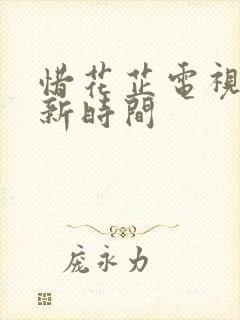 惜花芷電視
新時間
庞永力